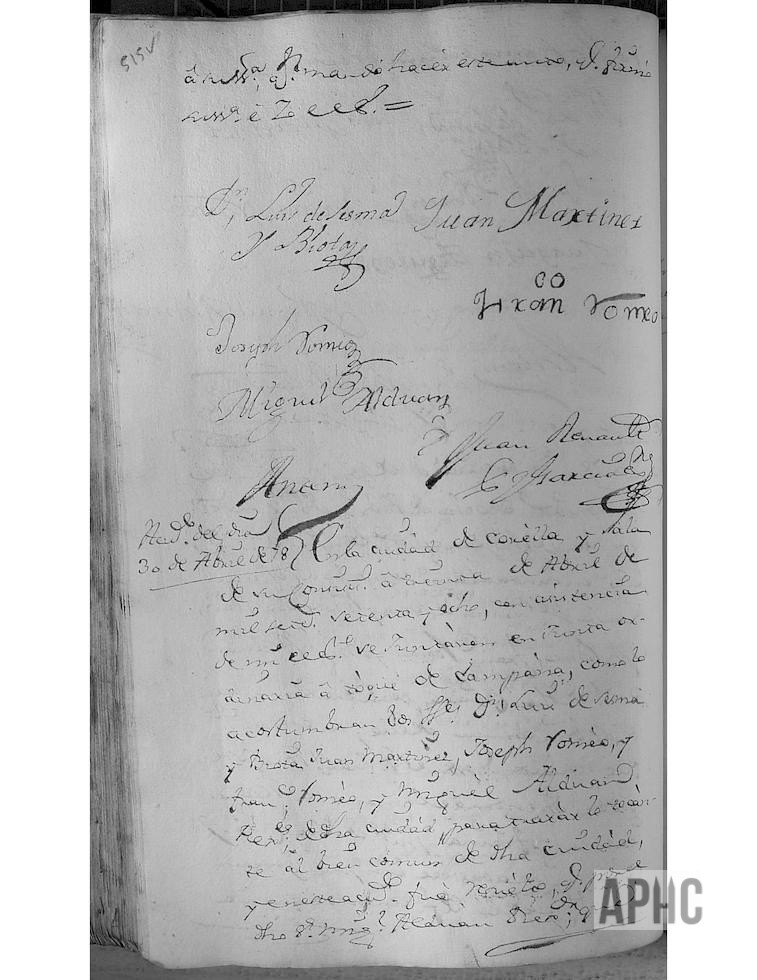 515V
mando hacer este auto, q.
e Yo el ess.no =
Dn. Luis de Sesma
Y Biota
Juan Martinez
co
Fran Romeo
Joseph Romeo
Miguel Alduan
Juan Renault
Y Garcia
Antemi
del dia
30 de Abril de 78
En la ciudad de corella y Sala
de su Consist. a treinta de Abril de
mil sett. setenta y ocho, con asistencia
de mi el ess. se Juntaron en Junta or-
dinaria a toque de Campana, como lo
acostumbran los Sres. Dn. Luis de Sesma
y Biota, Juan Martinez, Joseph Romeo, y
Fran. Romeo, y Miguel Alduan
Rexres. de dha ciudad, para tratar lo tocan-
te al bien comun de dha ciudad,
y en este fue q. por el
dho Sr. Migl. Alduan Rexr.
APHC